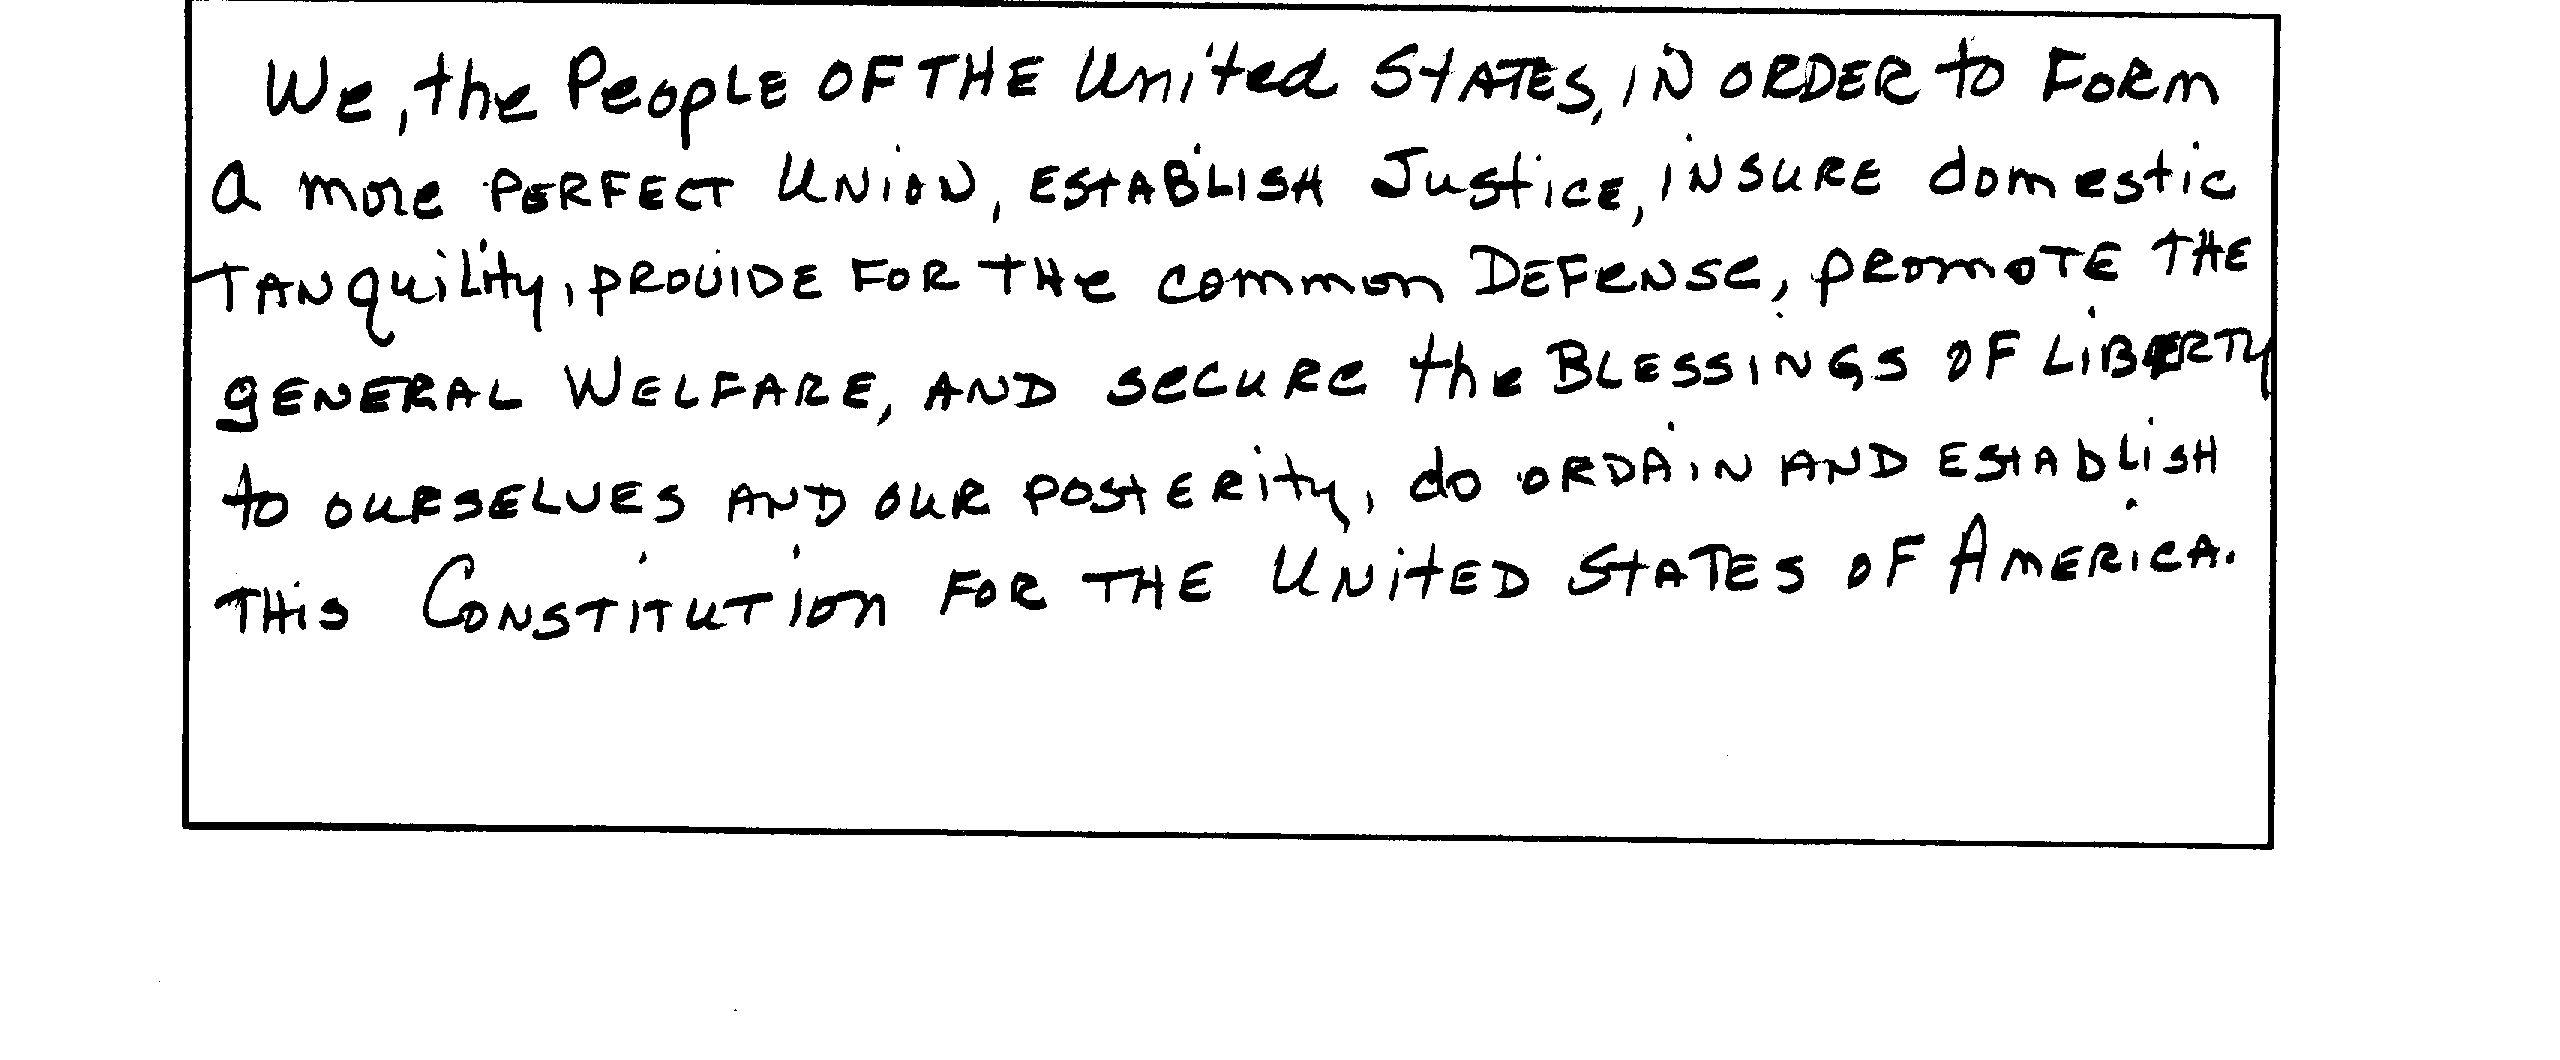 We, the People OF THE United STATES, IN ORDER to FORM
a more PERFECT UNION, ESTABLISH Justice, INSURE domestic
TANquility, PROVIDE FOR THe common DEFENSe, PROMOTE THE
gENERAL WELFARE, AND secuRe the BLESSINGS OF LiBERTY
to OURSELVES AND OUR POSTERity, do ORDAIN AND ESTABLISH
THiS CONSTITUTION FOR THE UNitED STATES OF AMERICA.